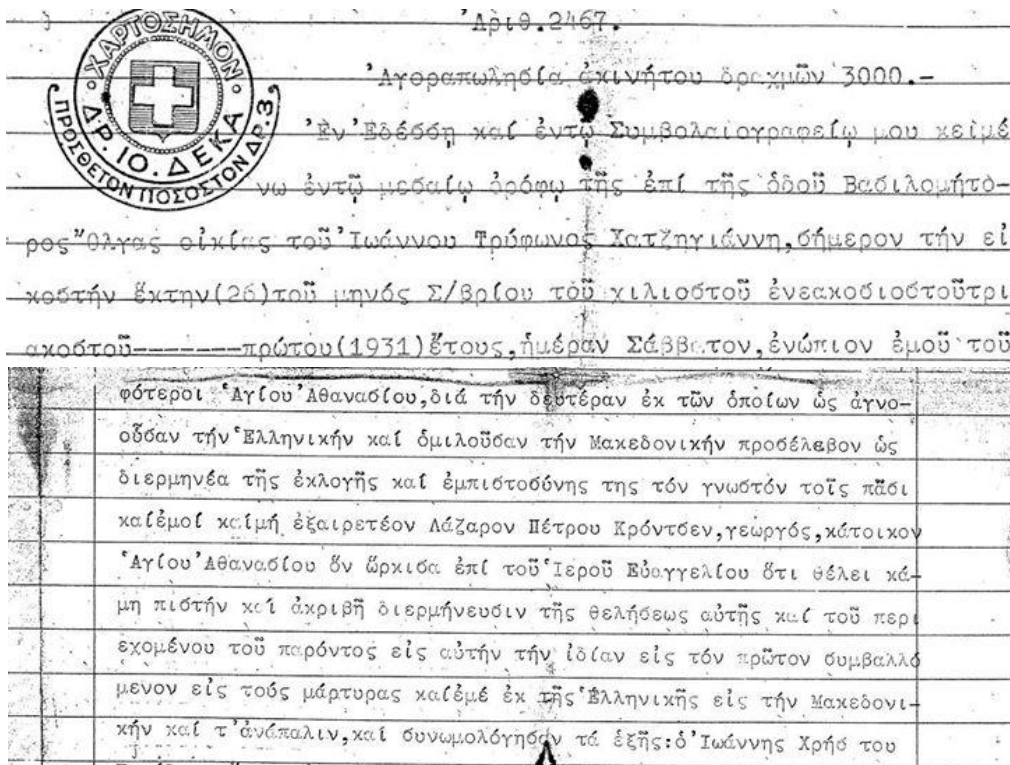 ΧΑΡΤΟΣΗΜΟΝ
ΔΡ. ΙΟ. ΔΕΚΑ
ΠΡΟΣΘΕΤΟΝ ΠΟΣΟΣΤΟΝ ΔΡ.3
Ἀριθ.2467.
Ἀγοραπωλησία ἀκινήτου δραχμῶν 3000.-
Ἐν Ἐδέσση καί ἐντῷ Συμβολαιογραφείῳ μου κειμέ
νω ἐντῷ μεσαίῳ ὀρόφῳ τῆς ἐπί τῆς ὁδοῦ Βασιλομήτο-
ρος Ὄλγας οἰκίας τοῦ Ἰωάννου Τρύφωνος Χατζηγιάννη,σήμερον τήν εἰ
κοστήν ἕκτην(26)τοῦ μηνός Σ/βρίου τοῦ χιλιοστοῦ ἐνεακοσιοστοῦτρι
ακοστοῦ-------πρώτου(1931)ἔτους,ἡμέραν Σάββατον,ἐνώπιον ἐμοῦ τοῦ
φότεροι Ἁγίου Ἀθανασίου,διά τήν δευτέραν ἐκ τῶν ὁποίων ὡς ἀγνο-
οῦσαν τήν Ἑλληνικήν καί ὁμιλοῦσαν τήν Μακεδονικήν προσέλαβον ὡς
διερμηνέα τῆς ἐκλογῆς καί ἐμπιστοσύνης της τόν γνωστόν τοῖς πᾶσι
καίἐμοί καίμή ἐξαιρετέον Λάζαρον Πέτρου Κρόντσεν,γεωργός,κάτοικον
Ἁγίου Ἀθανασίου ὅν ὥρκισα ἐπί τοῦ Ἱεροῦ Εὐαγγελίου ὅτι θέλει κά-
μη πιστήν καί ἀκριβῆ διερμήνευσιν τῆς θελήσεως αὐτῆς καί τοῦ περι
εχομένου τοῦ παρόντος εἰς αὐτήν τήν ἰδίαν εἰς τόν πρῶτον συμβαλλό
μενον εἰς τούς μάρτυρας καίἐμέ ἐκ τῆς Ἑλληνικῆς εἰς τήν Μακεδονι-
κήν καί τ'ἀνάπαλιν,καί συνωμολόγησαν τά ἑξῆς:ὁ Ἰωάννης Χρήσ του